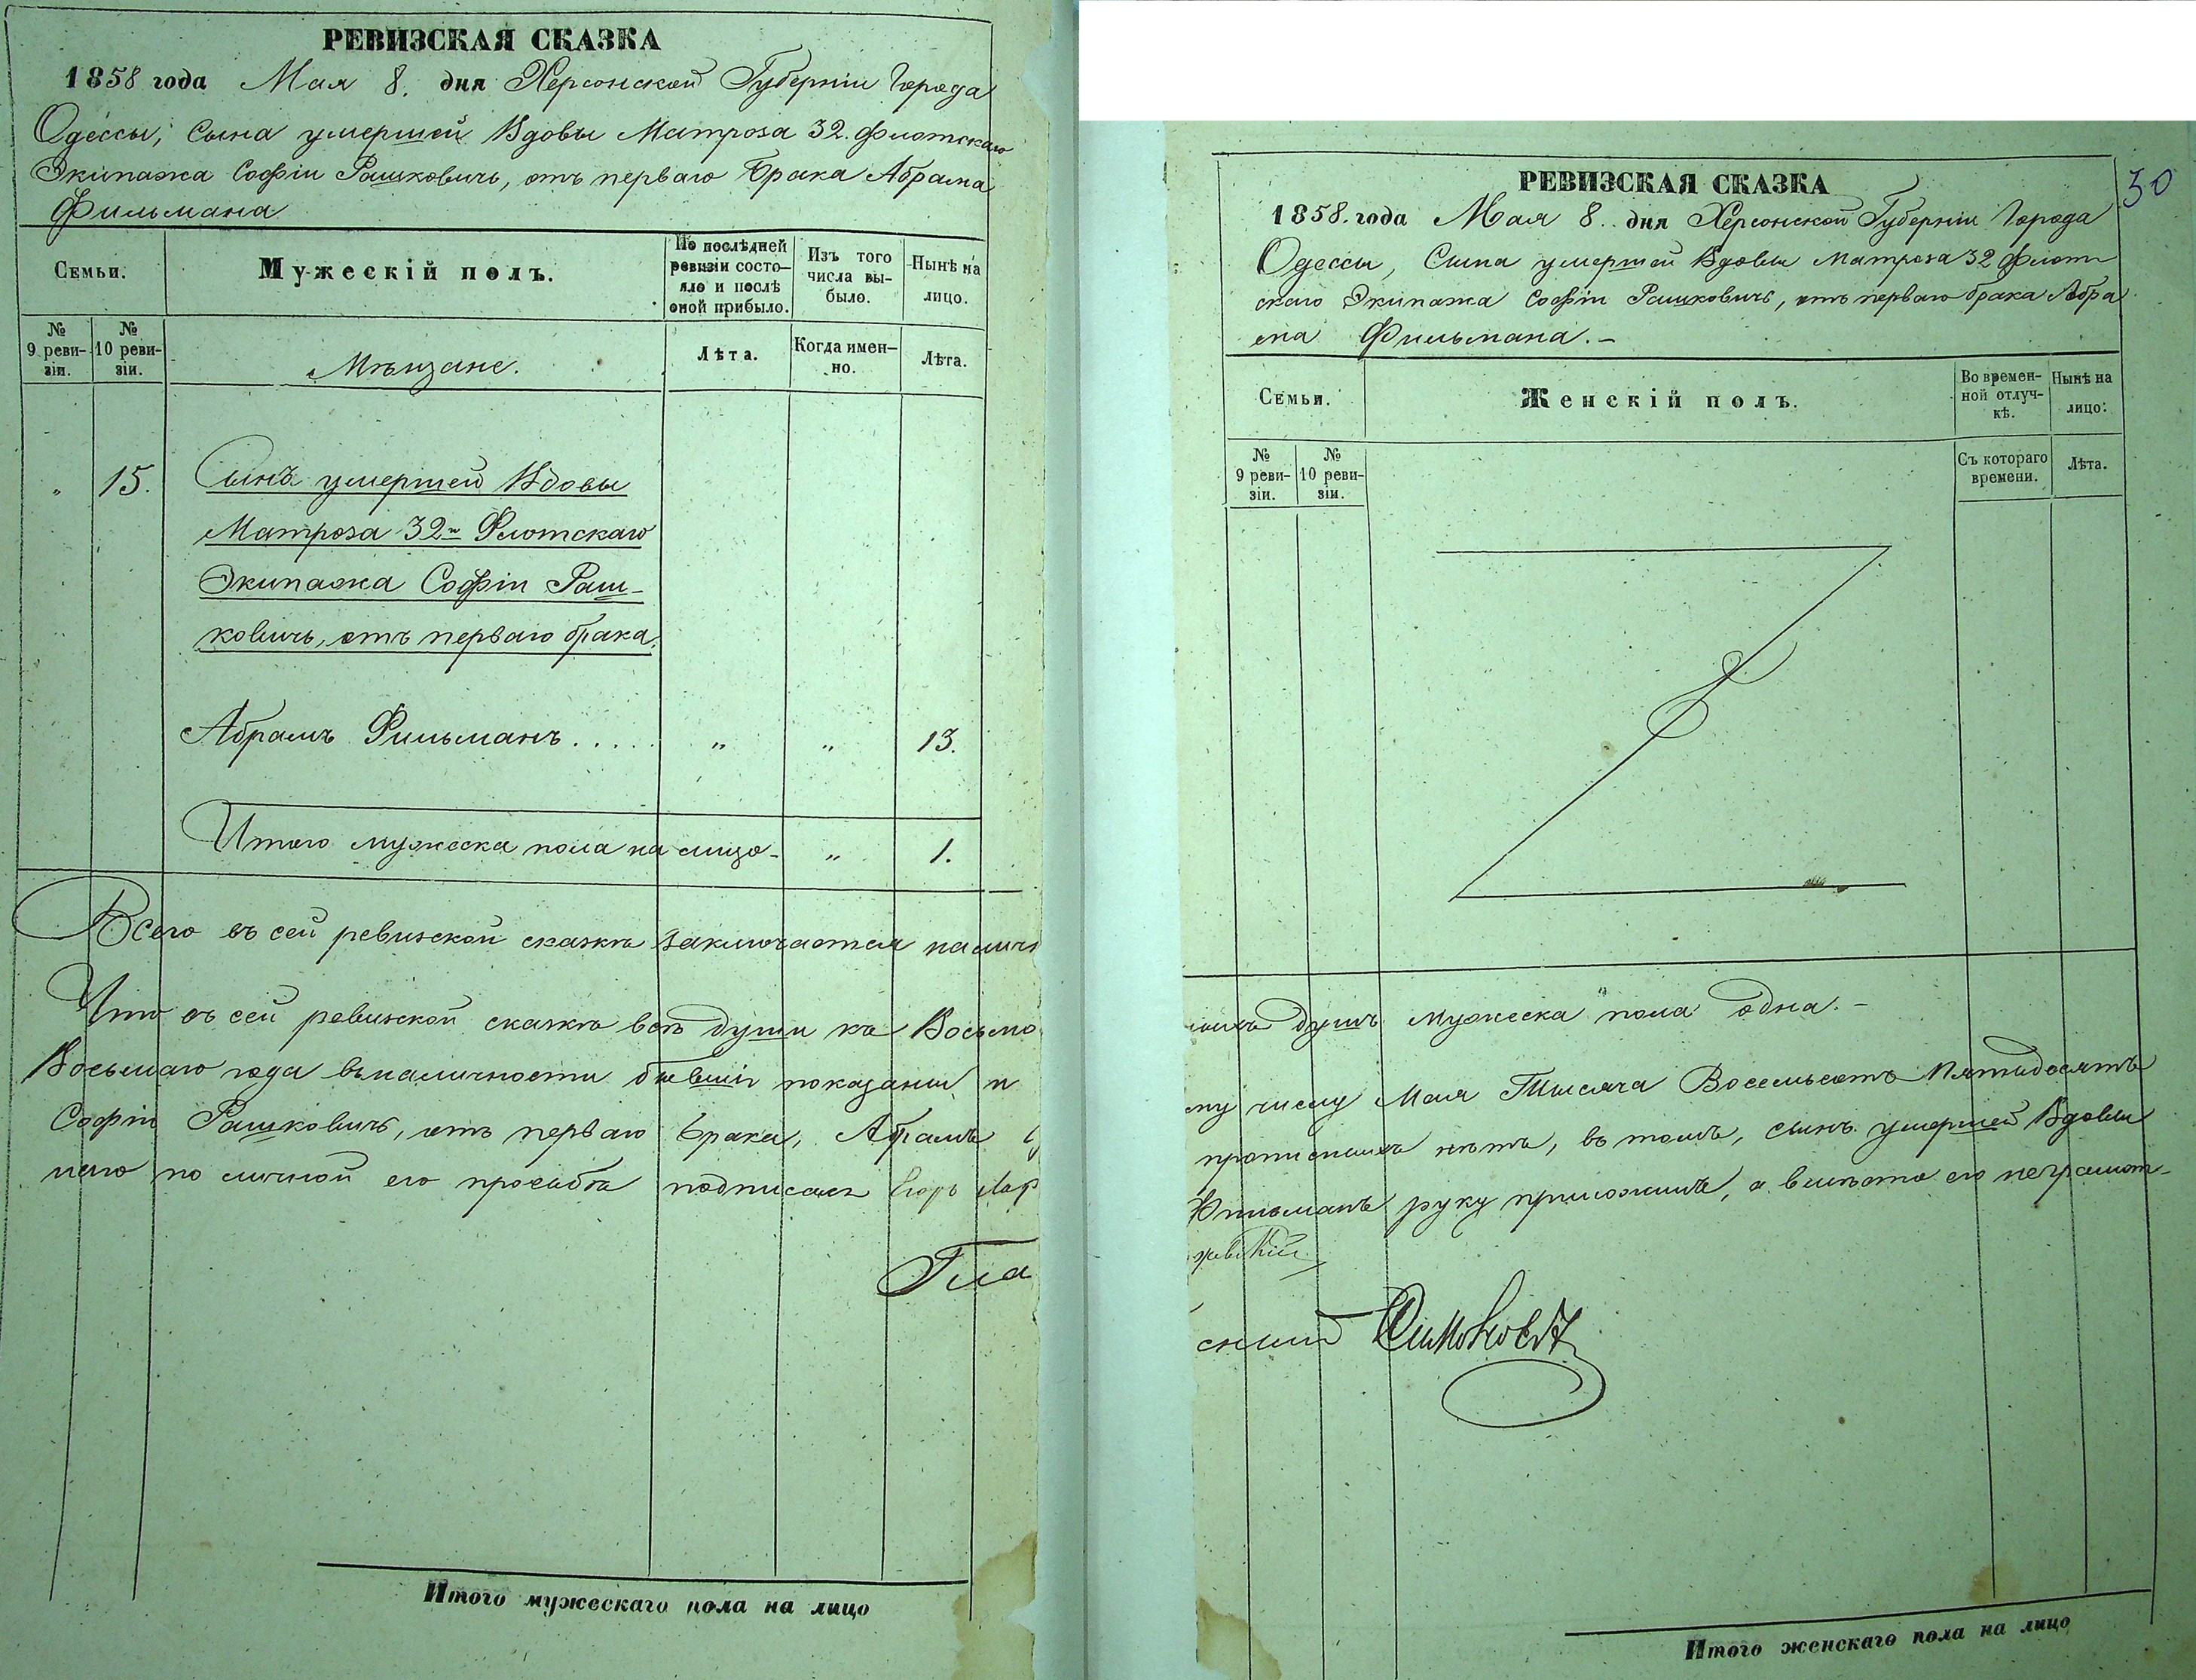 РЕВИЗСКАЯ СКАЗКА
1858 года Мая 8. дня Херсонской Губерніи Города
Одессы, Сына умершей Вдовы Матроза 32. флотскаго
Экипажа Софіи Рашковичь, отъ перваго Брака Абрама
Фильмана
Семьи.
Мужескій полъ.
По послѣдней
ревизіи состо-
яло и послѣ
оной прибыло.
Изъ того
числа вы-
было.
Нынѣ на
лицо.
№
9 реви-
зіи.
№
10 реви-
зіи.
Мѣщане.
Лѣта.
Когда имен-
но.
Лѣта.
„ 15. Сынъ умершей Вдовы
Матроза 32го Флотскаго
Экипажа Софіи Раш-
ковичь, отъ перваго брака.
Абрамъ Фильманъ..... „ „ 13.
Итого мужеска пола на лицо- „ 1.
Всего въ сей ревизской сказкѣ заключается налич
Что въ сей ревизской сказкѣ всѣ души къ Восьмо
Восьмаго года вьналичности бывшіе показаны и
Софіи Рашковичь, отъ перваго брака, Абрамъ
наго по личной его прозьбѣ подписалъ Егоръ
Гла
Итого мужескаго пола на лицо
30
РЕВИЗСКАЯ СКАЗКА
1858. года Мая 8. дня Херсонской Губерніи Города
Одессы, Сына умершей Вдовы матроза 32 флот
скаго Экипажа Софіи Рашковичь, отъ перваго брака Абра
ма Фильмана.-
Семьи.
Женскій полъ.
Во времен-
ной отлуч-
кѣ.
Нынѣ на
лицо.
№
9 реви-
зіи.
№
10 реви-
зіи.
Съ котораго
времени.
Лѣта.
душъ мужеска пола одна.-
му числу Мая Тысяча Восемьсотъ Пятидесятъ
прописныхъ нѣтъ, въ томъ, сынъ умершей Вдовы
Фильманъ руку приложилъ, а вмѣсто его неграмот-
сный Симоновъ
Итого женскаго пола на лицо